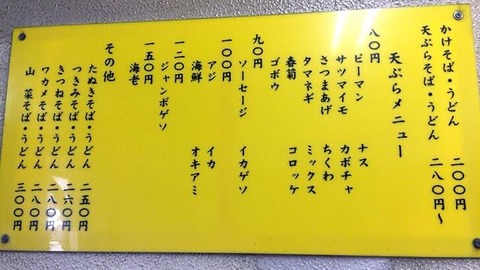 かけそば・うどん 二〇〇円
天ぷらそば・うどん 二八〇円～
天ぷらメニュー
八〇円
ピーマン ナス
サツマイモ カボチャ
さつまあげ ちくわ
タマネギ ミックス
春菊 コロッケ
ゴボウ
九〇円
ソーセージ イカゲソ
一〇〇円
アジ イカ
海鮮 オキアミ
一二〇円
ジャンボゲソ
一五〇円
海老
その他
たぬきそば・うどん 二五〇円
つきみそば・うどん 二六〇円
きつねそば・うどん 二八〇円
ワカメそば・うどん 二八〇円
山菜そば・うどん 三〇〇円